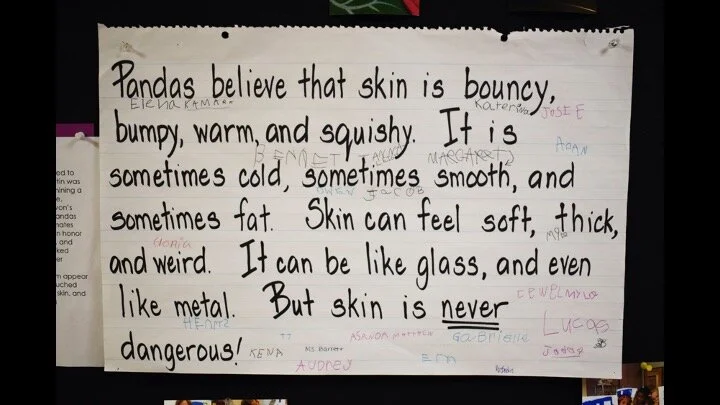 Pandas believe that skin is bouncy,
Elena
Katerina
JOSIE
bumpy, warm, and squishy. It is
BENNET
MARGARET
ADAN
sometimes cold, sometimes smooth, and
OWEN JACOB
sometimes fat. Skin can feel soft, thick,
Gloria
and weird. It can be like glass, and even
like metal. But skin is never
LUCAS
HENRY
dangerous!
KENA
Ms. Barrett
AUDREY
Gabrielle
ed to
tin was
mining a
e,
von's
andas
mates
n honor
, and
ked
er
m appear
uched
skin, and